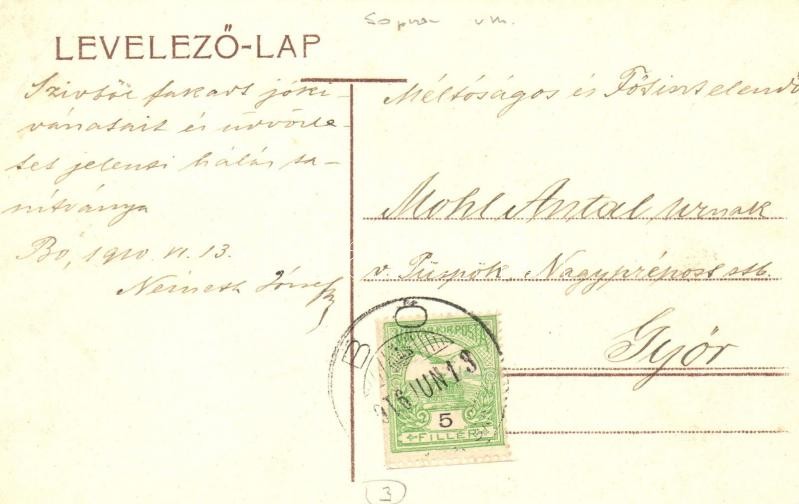 Sopron vm.
LEVELEZŐ-LAP
Szivből fakart jóki-
vánatait és üdvözle-
tet jelenti hálás ta-
nítványa
Bő, 1910 VI. 13.
Németh József
Méltóságos és Főtisztelendő
Mohl Antal urnak
v. Püspök, Nagyprépost stb.
Győr
BŐ
MAGYAR KIR. POSTA
JUN 13
5
FILLÉR
3